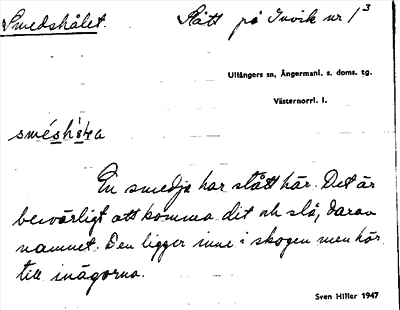 Smedshålet. Slått på Invik nr 1³
Ullångers sn, Ångermanl. s. doms. tg.
Västernorrl. l.
En smedja har stått här. Det är
besvärligt att komma dit och slå, därav
namnet. Den ligger inne i skogen men hör
till inägorna.
Sven Hiller 1947